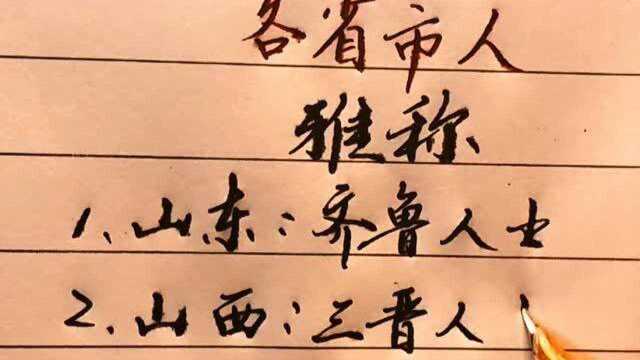 各省市人
雅称
1、山东：齐鲁人士
2、山西：三晋人